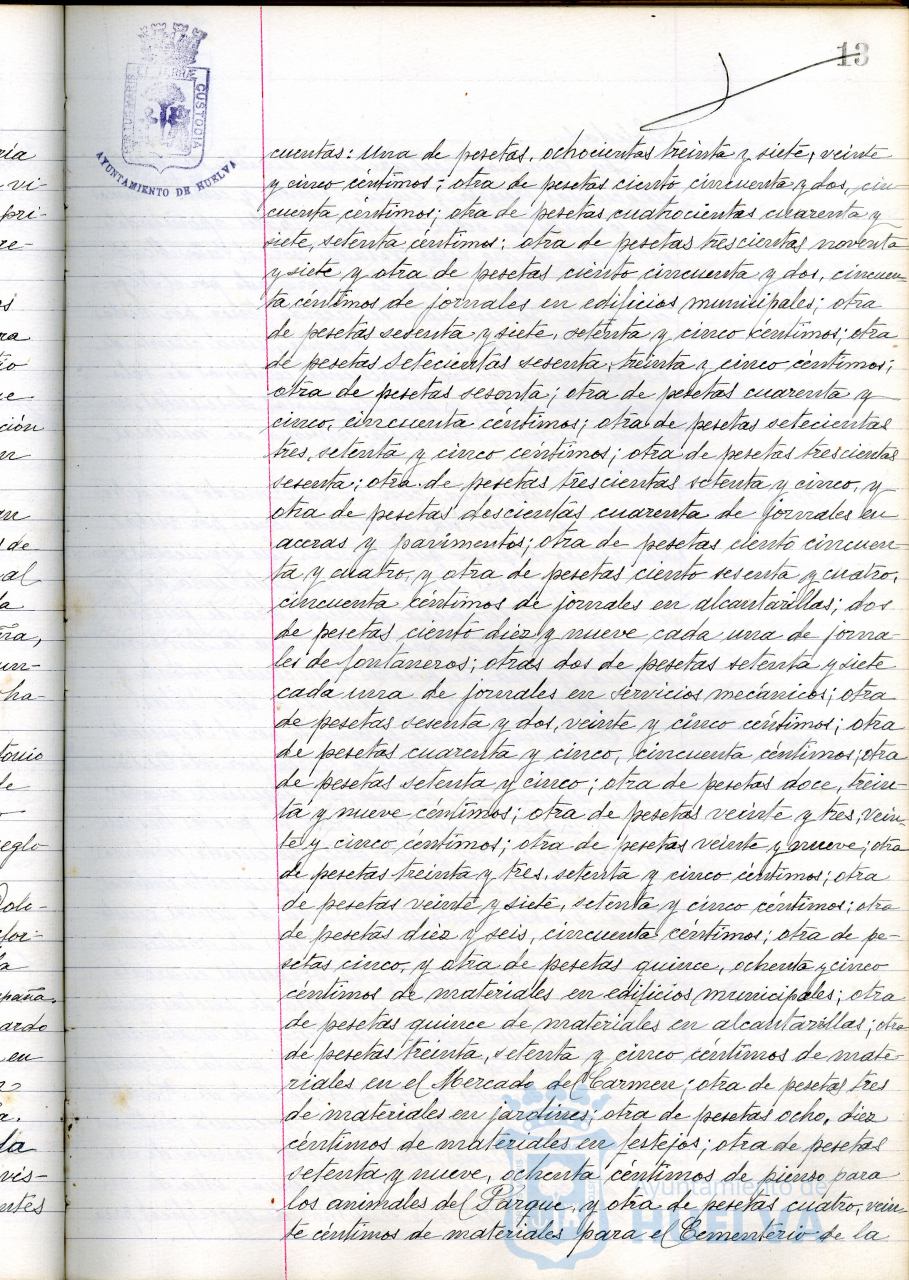 13
PORTUS MARIS ET TERRAE CUSTODIA
AYUNTAMIENTO DE HUELVA
cuentas: una de pesetas, ochocientas treinta y siete, veinte
y cinco céntimos; otra de pesetas ciento cincuenta y dos, cin-
cuenta céntimos; otra de pesetas cuatrocientas cuarenta y
siete, setenta céntimos; otra de pesetas trescientas noventa
y siete y otra de pesetas ciento cincuenta y dos, cincuen-
ta céntimos de jornales en edificios municipales; otra
de pesetas sesenta y siete, setenta y cinco céntimos; otra
de pesetas setecientas sesenta, treinta y cinco céntimos;
otra de pesetas sesenta; otra de pesetas cuarenta y
cinco, cincuenta céntimos; otra de pesetas setecientas
tres, setenta y cinco céntimos; otra de pesetas trescientas
sesenta; otra de pesetas trescientas setenta y cinco, y
otra de pesetas doscientas cuarenta de jornales en
aceras y pavimentos; otra de pesetas ciento cincuen-
ta y cuatro, y otra de pesetas ciento sesenta y cuatro,
cincuenta céntimos de jornales en alcantarillas; dos
de pesetas ciento diez y nueve cada una de jorna-
les de fontaneros; otras dos de pesetas setenta y siete
cada una de jornales en servicios mecánicos; otra
de pesetas sesenta y dos, veinte y cinco céntimos; otra
de pesetas cuarenta y cinco, cincuenta céntimos; otra
de pesetas setenta y cinco; otra de pesetas doce, trein-
ta y nueve céntimos; otra de pesetas veinte y tres, vein-
te y cinco céntimos; otra de pesetas veinte y nueve; otra
de pesetas treinta y tres, setenta y cinco céntimos; otra
de pesetas veinte y siete, setenta y cinco céntimos; otra
de pesetas diez y seis, cincuenta céntimos; otra de pe-
setas cinco, y otra de pesetas quince, ochenta y cinco
céntimos de materiales en edificios municipales; otra
de pesetas quince de materiales en alcantarillas; otra
de pesetas treinta, setenta y cinco céntimos de mate-
riales en el Mercado del Carmen; otra de pesetas tres
de materiales en jardines; otra de pesetas ocho, diez
céntimos de materiales en festejos; otra de pesetas
setenta y nueve, ochenta céntimos de pienso para
los animales del Parque, y otra de pesetas cuatro, vein-
te céntimos de materiales para el Cementerio de la
Ayuntamiento de
HUELVA